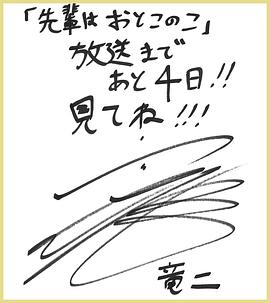 「先輩はおとこのこ」
放送まで
あと4日!!
見てね!!!
竜二